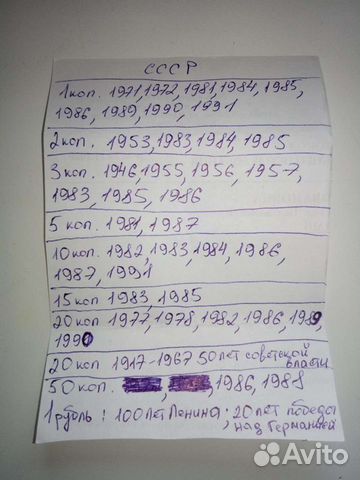 СССР
1коп. 1971, 1972, 1981, 1984, 1985,
1986, 1989, 1990, 1991
2коп. 1953, 1983, 1984, 1985
3коп. 1946, 1955, 1956, 1957,
1983, 1985, 1986
5 коп. 1981, 1987
10коп. 1982, 1983, 1984, 1986,
1987, 1991
15коп 1983, 1985
20коп 1977, 1978, 1982, 1986, 1989,
1990
20коп 1917-1967 50лет советской
власти
50коп. , , 1986, 1988
1рубль: 100лет Ленина; 20лет победы
над Германией
Avito